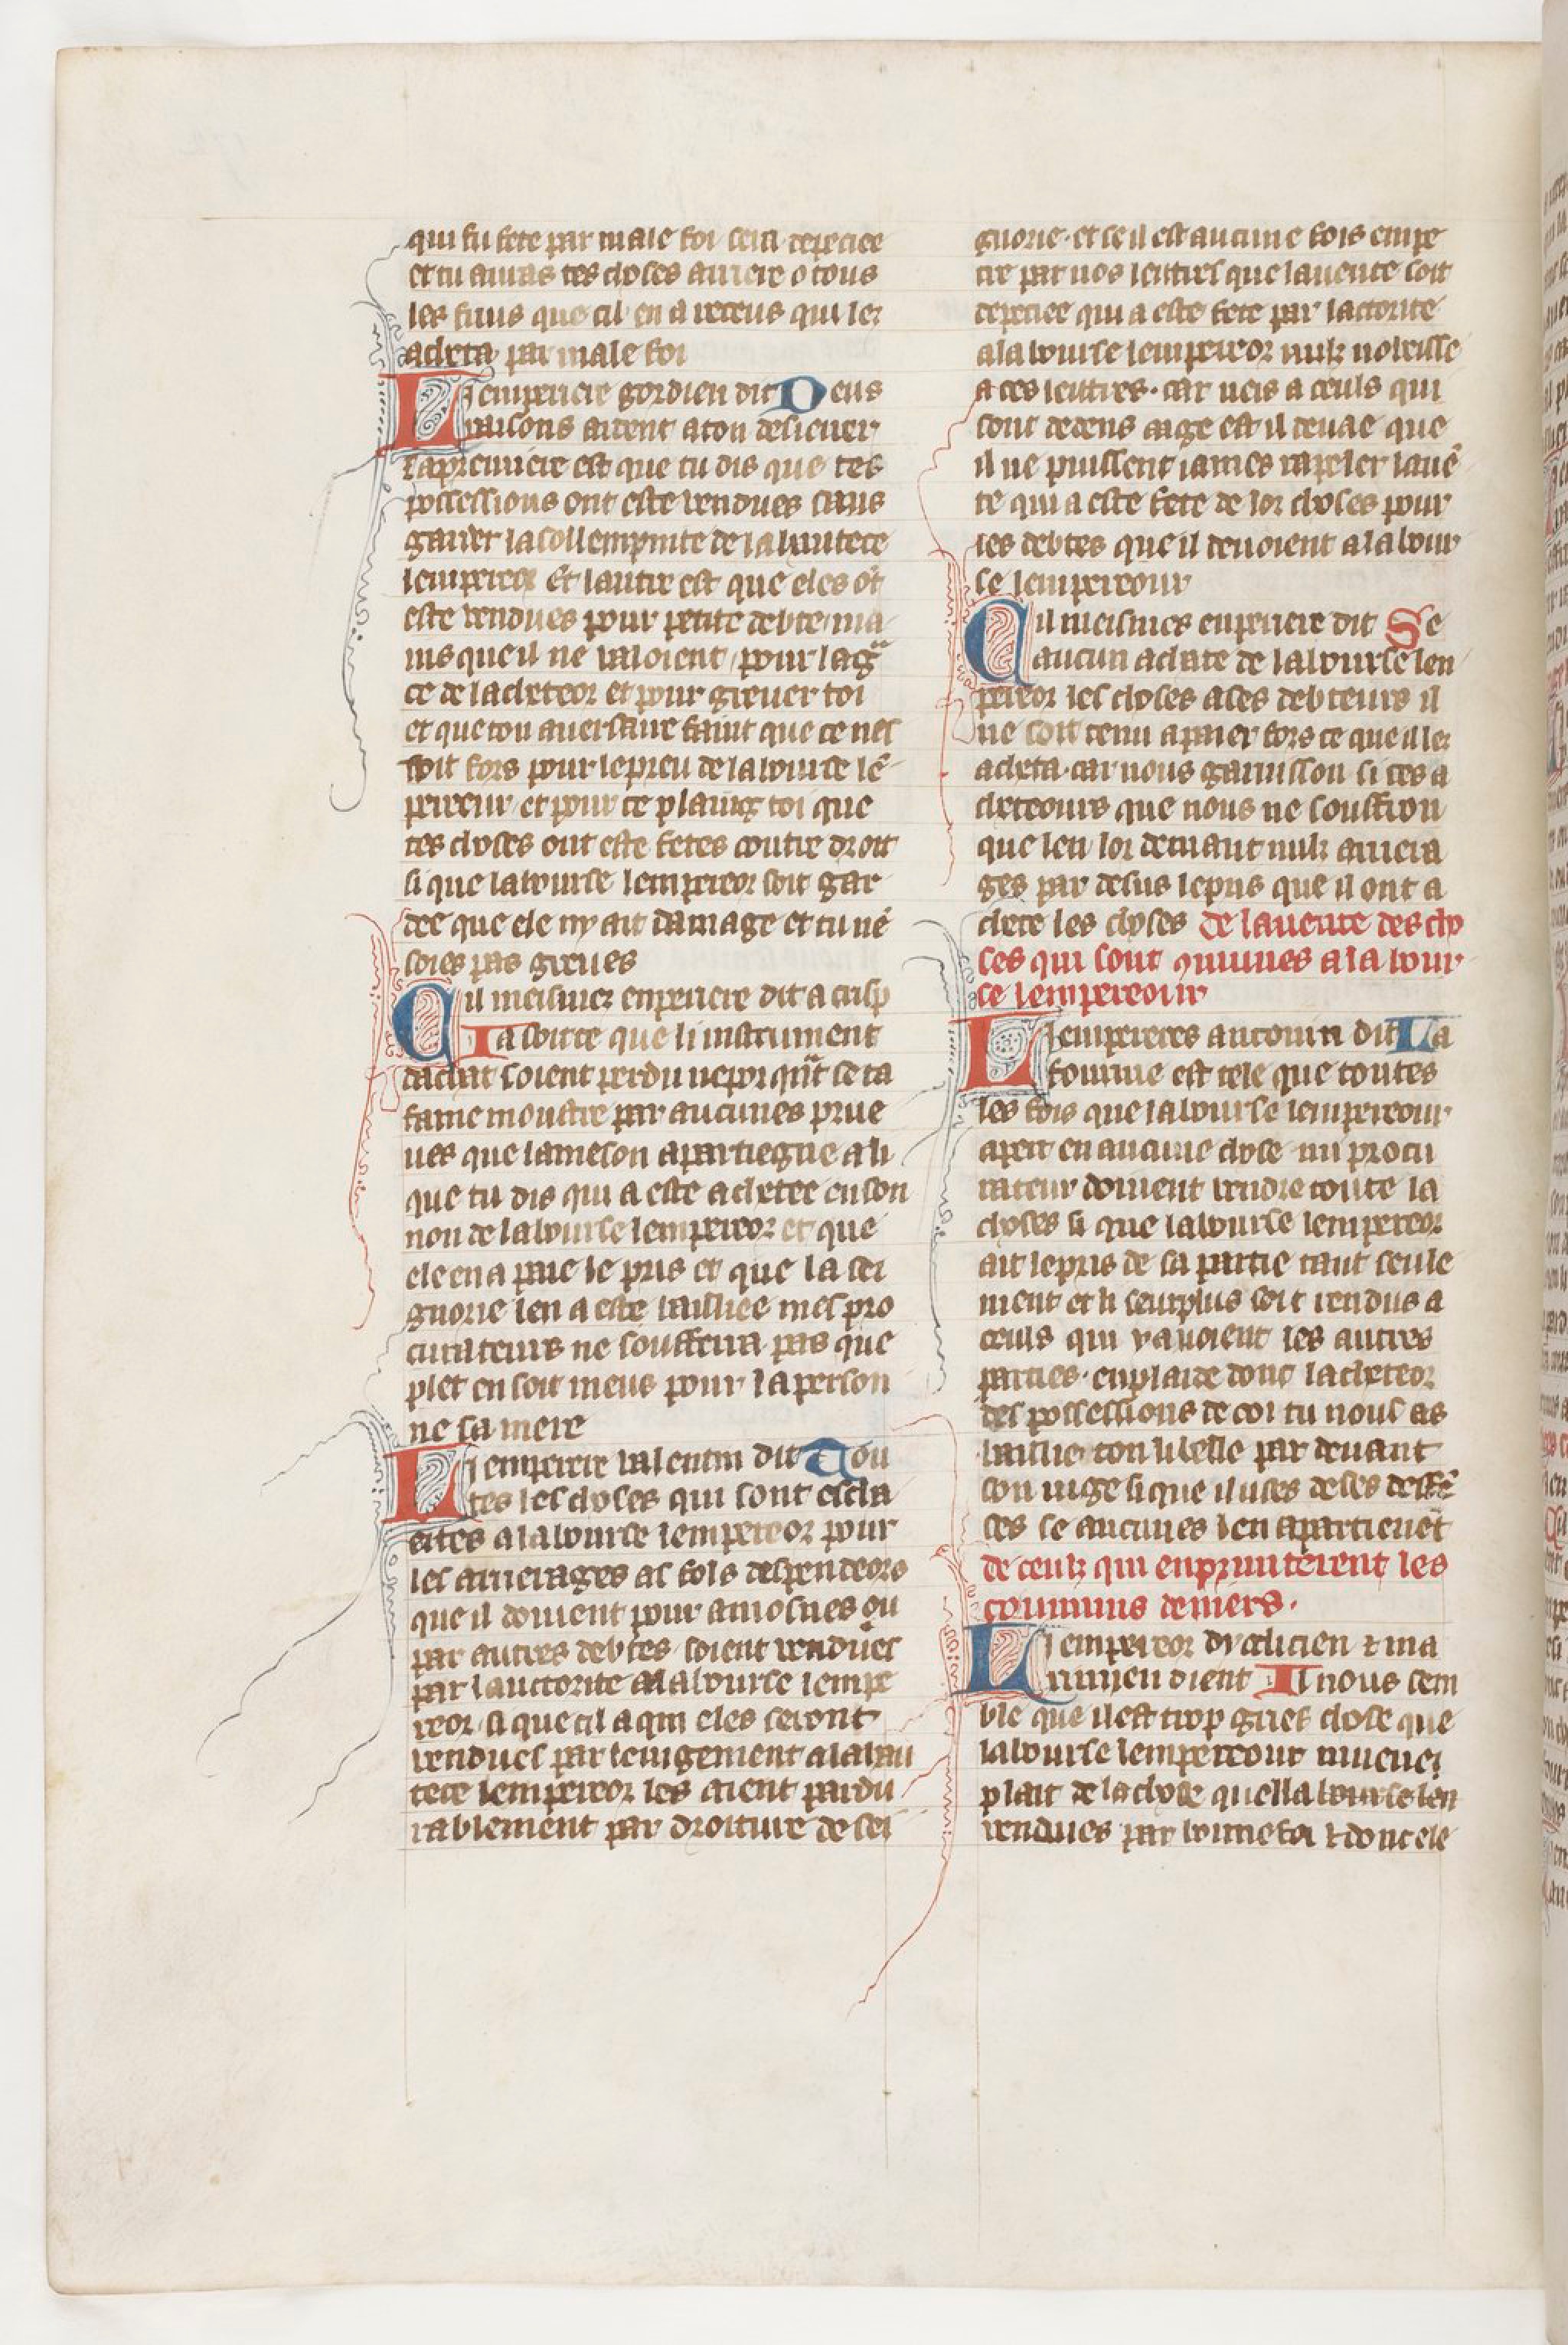 qui fu fete par male foi sera depeciee
et tu auras tes choses arriere o tous
les fruis que cil en a receus qui les
acheta par male foi
Li emperiere gordien dit Deus
raisons aident a ton desirrer
la premiere est que tu dis que tes
possessions ont este vendues sans
garder la sollempnite de la hautece
lempereor Et lautre est que eles ōt
este vendues pour petite debte mai
ns que il ne valoient pour la gͣ
ce de lacheteor et pour grever toi
et que ton aversaire faint que ce nel
soit fors pour le preu de la bourse lē
pereeur et pour ce plaing toi que
tes choses ont este fetes contre droit
si que la bourse lempereor soit gar
dee que ele ny ait damage et tu nē
soies pas greves
Cil meismes emperiere dit a crisp
Ia soit ce que li instrument
dachat soient perdu neporqūt se ta
fame moustre par aucunes prue
ues que la meson apartiegne a li
que tu dis qui a este achetee en son
non de la bourse lempereor et que
ele en a paie le pris et que la sei
gnorie len a este bailliee mes pro
curateurs ne souffrera pas que
plet en soit meus pour la person
ne sa mere
Li emperere valentin dit Tou
tes les choses qui sont escha
eites a la bourse lempereor pour
les arrerages as fols despendeors
que il doivent pour amosnes ou
par autres debtes soient vendues
par lauctorite a la bourse lempe
reor si que cil a qui eles seront
vendues par le jugement a la hau
tece lempereor les aient pardu
rablement par droiture de sei
gnorie et se il est aucune fois empe
tre par nos lettres que la vente soit
depeciee qui a este fete par lactorite
a la bourse lempereor nulz nobeisse
a ces lettres car neis a ceuls qui
sont dedens aage est il devae que
il ne puissent james rapeler la vē
te qui a este fete de lor choses pour
les debtes que il devoient a la bour
se lempereour
Cil meismes enperiere dit Se
aucun achate de la bourse len
pereor les choses a ses debteurs il
ne soit tenu a paier fors ce que il les
acheta car nous garnisson si ces a
cheteours que nous ne souffron
que len lor demant nulz arrera
ges par desus le pris que il ont a
chete les choses de la vente des cho
ses qui sont qmunes a la bour
se lempereour
Li empereres antonin dit La
fourme est tele que toutes
les fois que la bourse lempereour
apert en aucune chose mi procu
rateur doivent vendre toute la
choses si que la bourse lempereor
ait le pris de sa partie tant seule
ment et li seurplus soit rendus a
ceuls qui y avoient les autres
parties enplaide donc lacheteor
des possessions de coi tu nous as
baillie ton libelle par devant
son juge si que il uses de ses deffē
ces se aucunes len apartienēt
de ceulz qui enprunterent les
communs deniers.
Li empereor dyoclicien ⁊ ma
ximien dient Il nous sem
ble que il est trop gries chose que
la bourse lempereour mueue
plait de la chose quella bourse len
vendues par bonne foi ⁊ donc ele